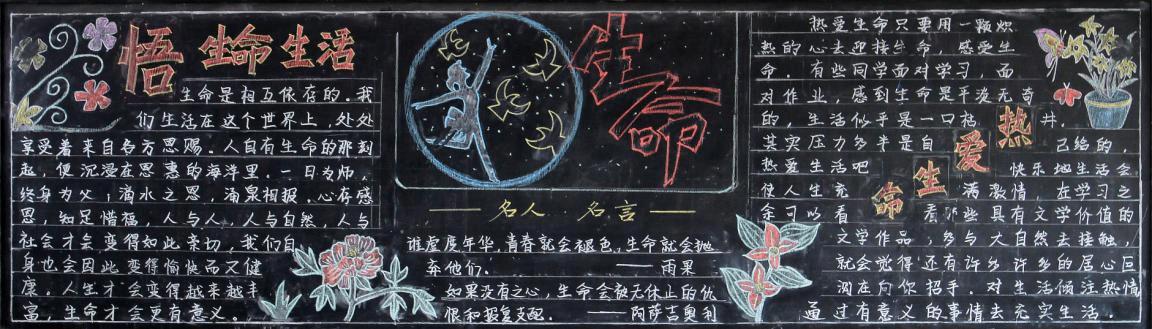 悟 生命生活
生命是相互依存的。我
们生活在这个世界上，处处
享受着来自各方恩赐。人自有生命的那刻
起，便沉浸在恩惠的海洋里。一日为师，
终身为父；滴水之恩，涌泉相报。心存感
恩，知足惜福，人与人、人与自然，人与
社会才会变得如此亲切，我们自
身也会因此变得愉快而又健
康。人生才会变得越来越丰
富，生命才会更有意义。
生命
名人 名言
谁虚度年华，青春就会褪色，生命就会抛
弃他们。 ——雨果
如果没有之心，生命会被无休止的仇
恨和报复支配。——阿萨吉奥利
热爱生命
热爱生命只要用一颗炽
热的心去迎接生命，感受生
命。有些同学面对学习，面
对作业，感到生命是平淡无奇
的，生活似乎是一口枯 井。
其实压力多半是自 己给的，
热爱生活吧 快乐地生活会
使人生充 满激情，在学习之
余可以看 看那些具有文学价值的
文学作品，多与大自然去接触，
就会觉得还有许多许多的居心叵
测在向你招手。对生活倾注热情
通过有意义的事情去充实生活。